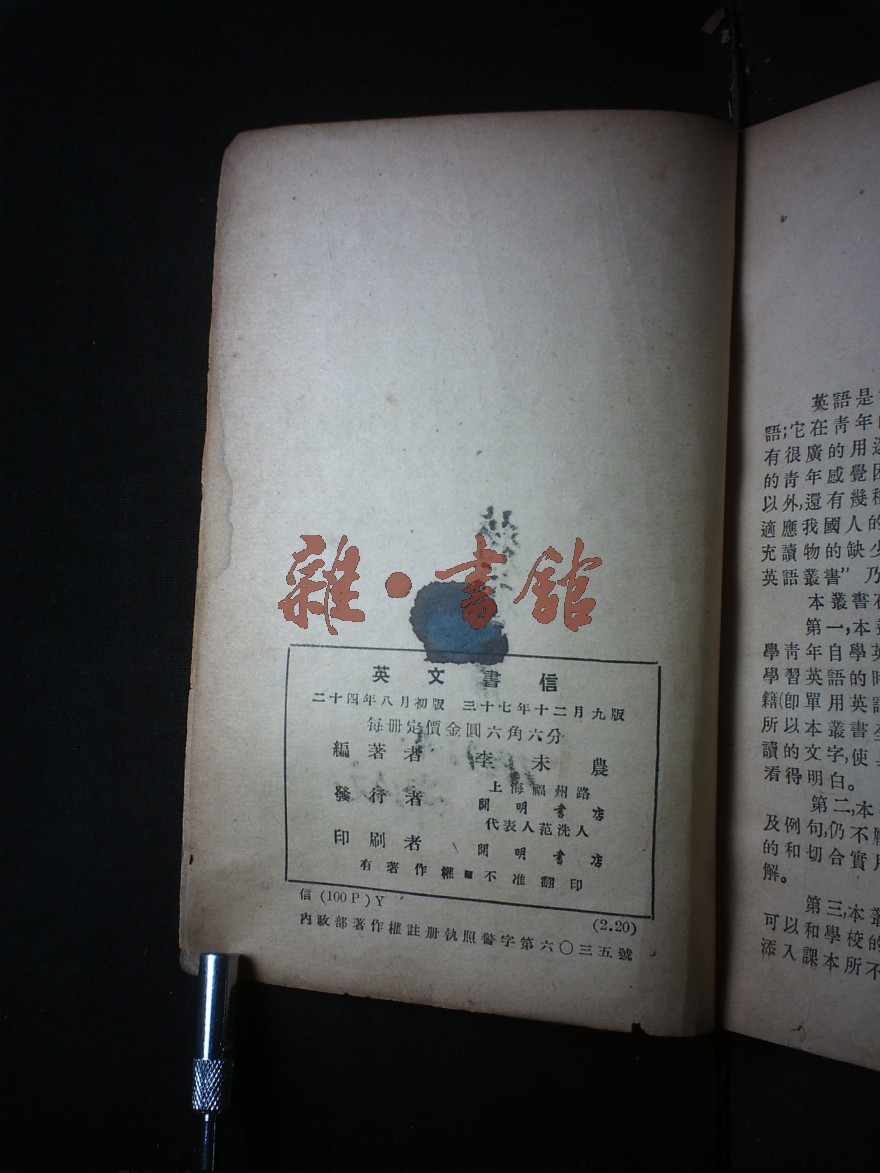 雜·書館
英文書信
二十四年八月初版 三十七年十二月九版
每冊定價金圓六角六分
編著者 李未農
發行者 上海福州路
開明書店
代表人范洗人
印刷者 開明書店
有著作權■不准翻印
信(100P)Y (2.20)
內政部著作權註册執照警字第六〇三五號
英語是
語;它在靑年
有很廣的用
的靑年感覺
以外,還有幾種
適應我國人的
充讀物的缺少
英語叢書”乃
本叢書
第一,本
學靑年自學英
學習英語的時
籍(卽單用英語
所以本叢書
讀的文字,使
看得明白。
第二,本
及例句,仍不
的和切合實用
解。
第三,本叢
可以和學校的
添入課本所不